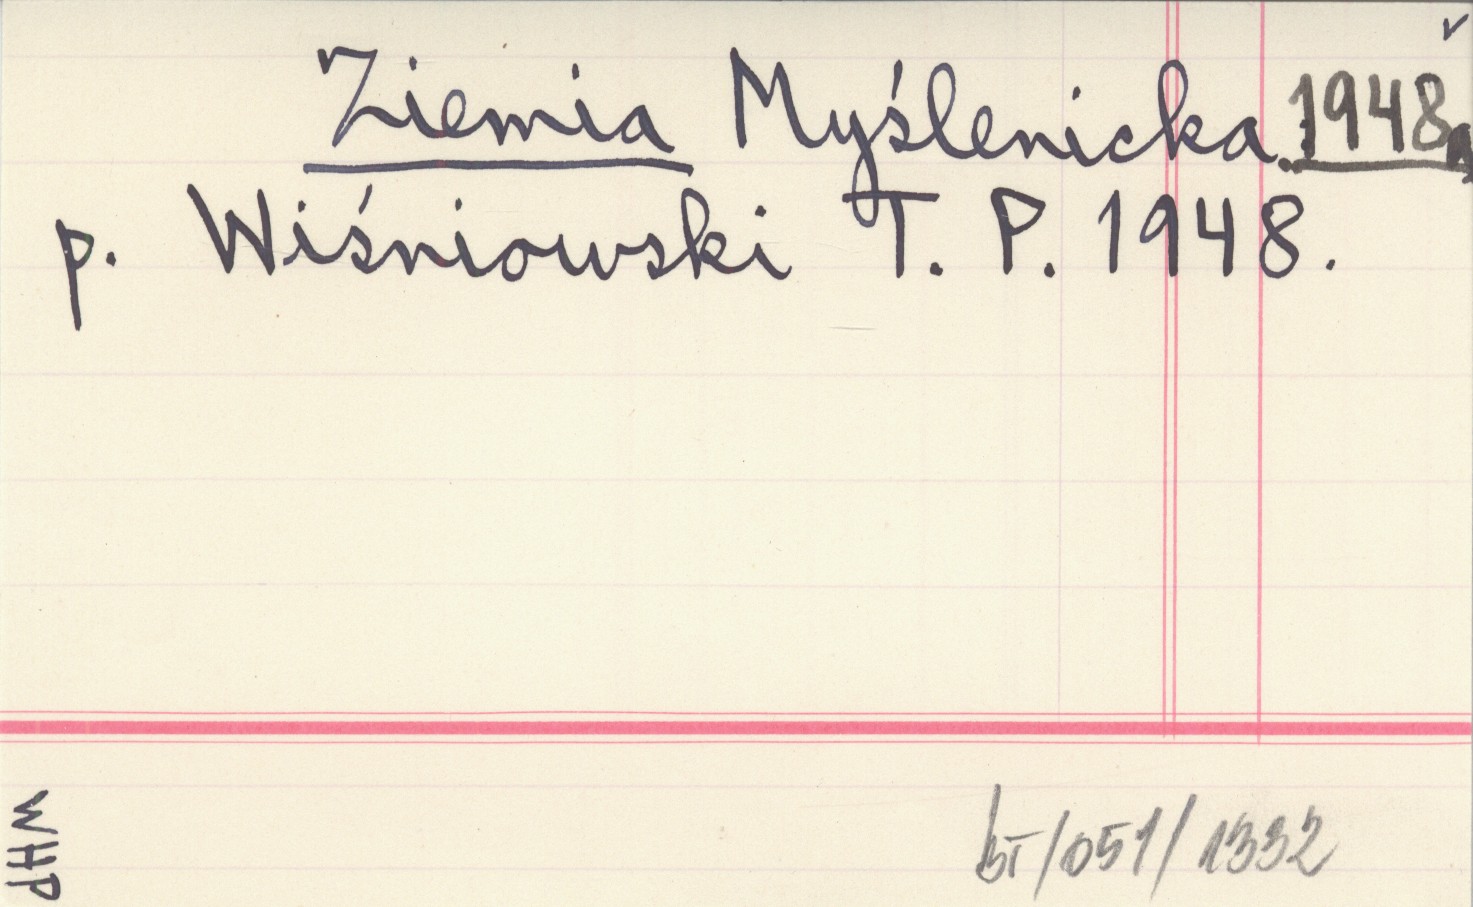 v
Ziemia Myślenicka 1948a
p. Wiśniowski T. P. 1948.
WHP
bT/051/1332